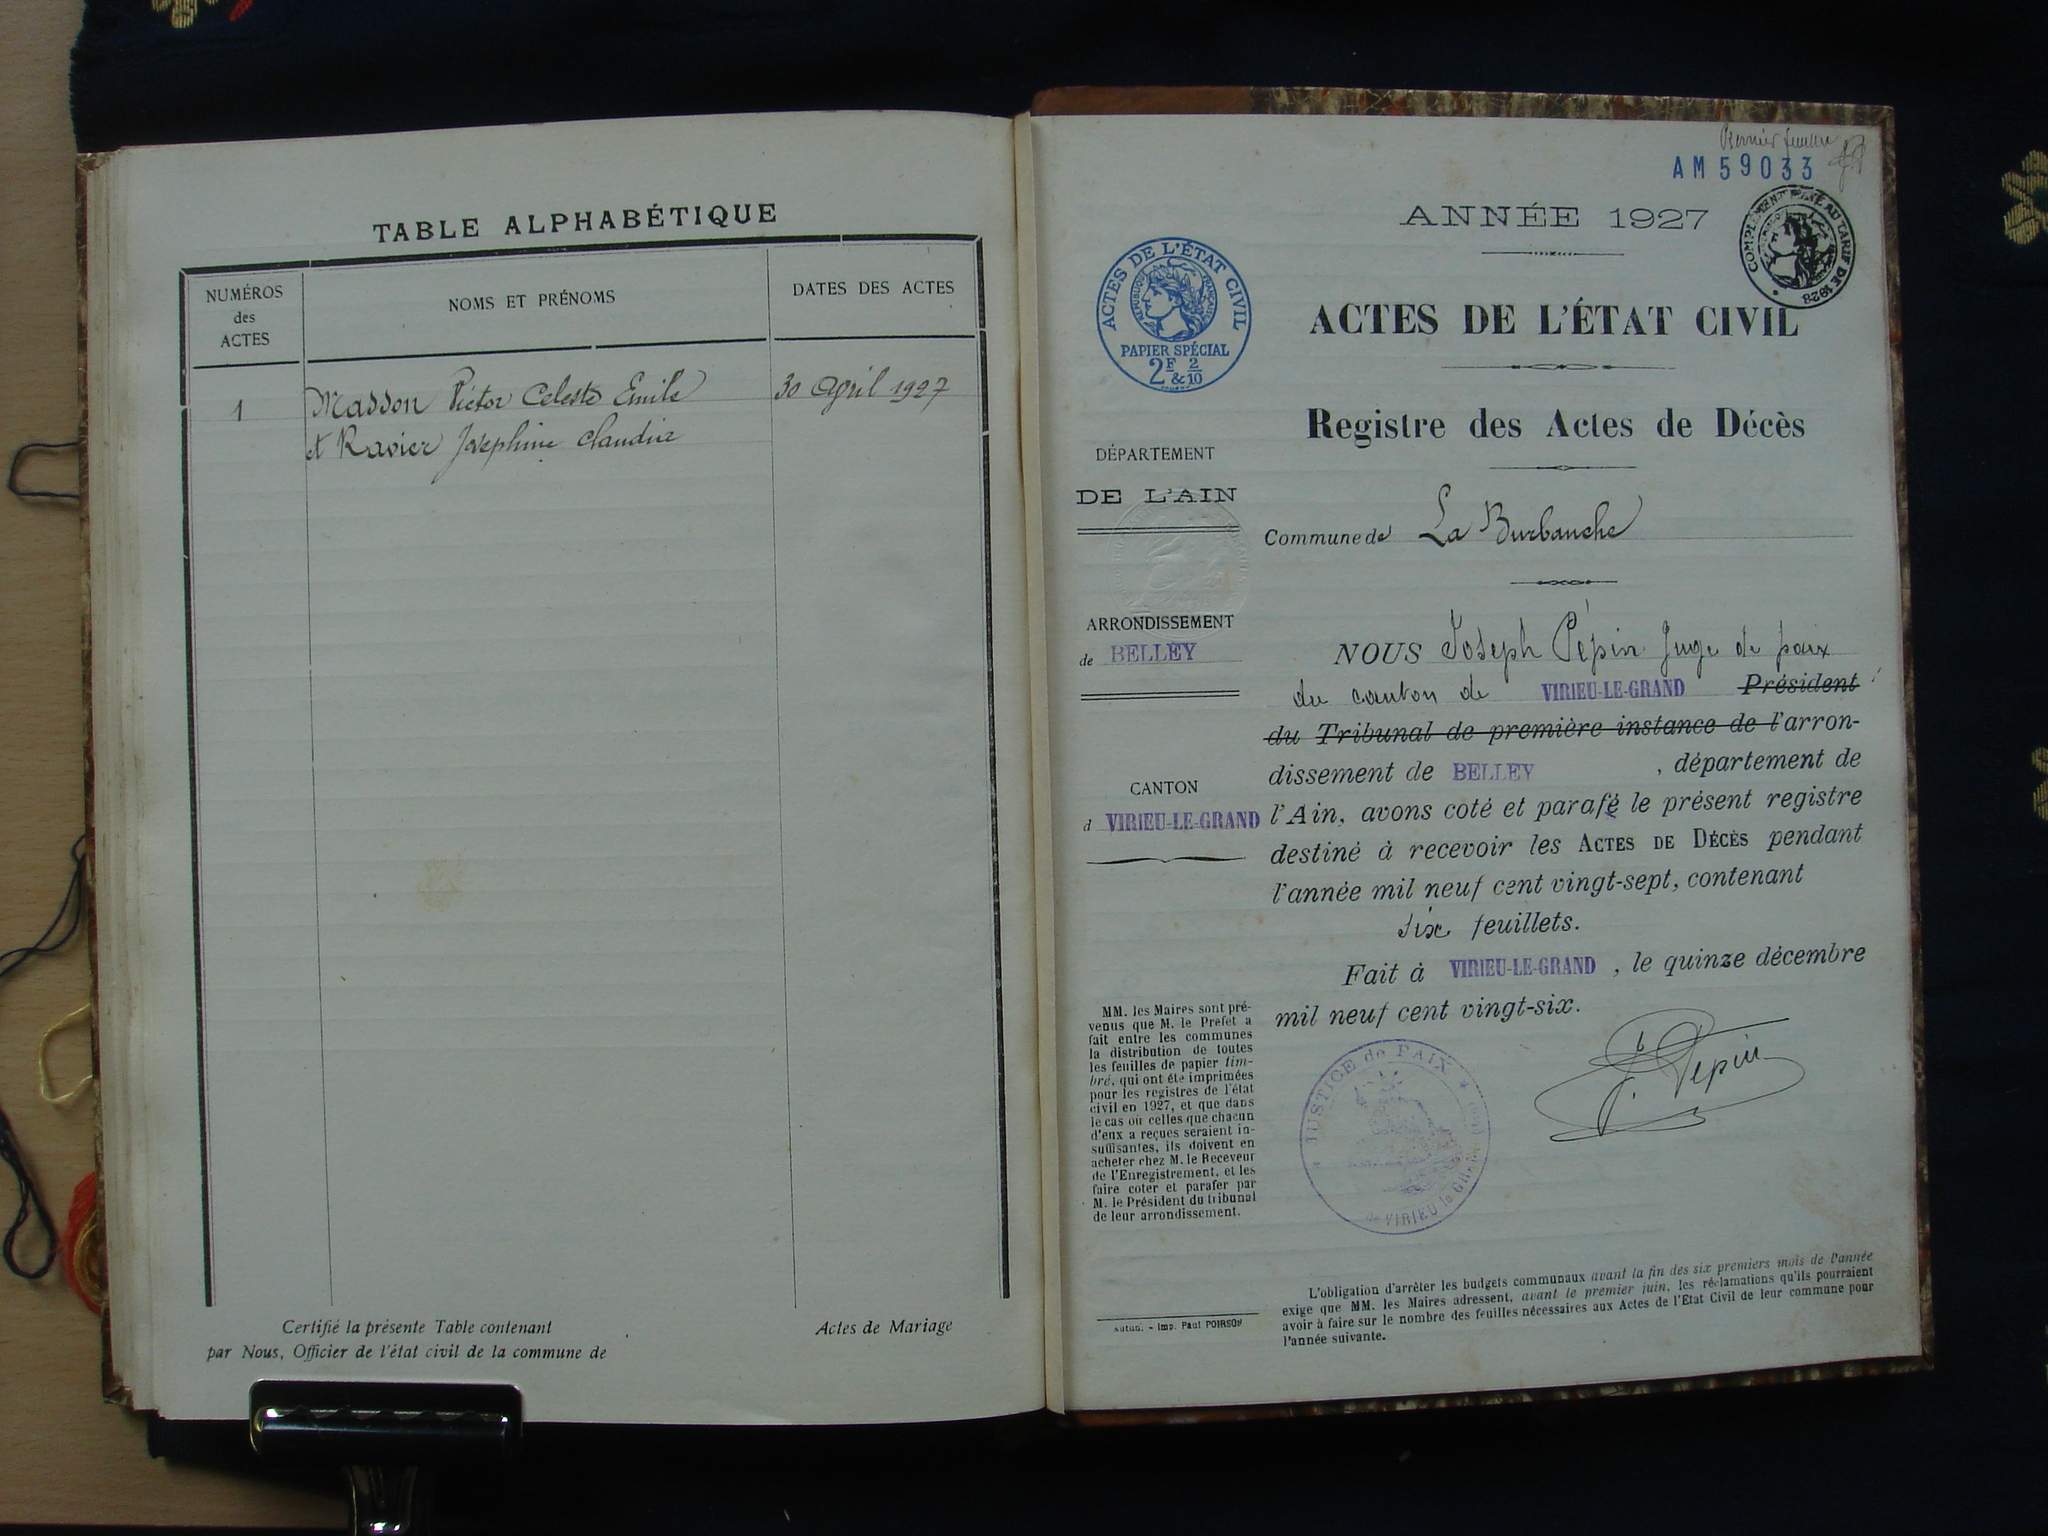 TABLE ALPHABÉTIQUE
NUMÉROS
des
ACTES
NOMS ET PRÉNOMS
DATES DES ACTES
1
Masson Victor Celeste Emile
30 april 1927
et Ravier Joséphine Claudine
Certifié la présente Table contenant
Actes de Mariage
par Nous, Officier de l'état civil de la commune de
Premier feuillet
AM 59033
ANNÉE 1927
COMPLÉMENT PAYÉ AU TARIF DE 1926
ACTES DE L'ÉTAT CIVIL
RÉPUBLIQUE FRANÇAISE
PAPIER SPÉCIAL
2F & 2/10
ACTES DE L'ÉTAT CIVIL
Registre des Actes de Décès
DÉPARTEMENT
DE L'AIN
Commune de La Burbanche
ARRONDISSEMENT
de BELLEY
CANTON
d VIRIEU-LE-GRAND
NOUS Joseph Pépin Juge de paix
du canton de VIRIEU-LE-GRAND Président
du Tribunal de première instance de l'arron-
dissement de BELLEY , département de
l'Ain, avons coté et parafé le présent registre
destiné à recevoir les ACTES DE DÉCÈS pendant
l'année mil neuf cent vingt-sept, contenant
six feuillets.
Fait à VIRIEU-LE-GRAND , le quinze décembre
mil neuf cent vingt-six.
J. Pépin
JUSTICE de PAIX
de VIRIEU le Gd
MM. les Maires sont pré-
venus que M. le Prefet a
fait entre les communes
la distribution de toutes
les feuilles de papier tim-
bré, qui ont été imprimées
pour les registres de l'état
civil en 1927, et que dans
le cas où celles que chacun
d'eux a reçues seraient in-
suffisantes, ils doivent en
acheter chez M. le Receveur
de l'Enregistrement, et les
faire coter et parafer par
M. le Président du tribunal
de leur arrondissement.
Autun. - Imp. Paul POIRSON
L'obligation d'arrêter les budgets communaux avant la fin des six premiers mois de l'année
exige que MM. les Maires adressent, avant le premier juin, les réclamations qu'ils pourraient
avoir à faire sur le nombre des feuilles nécessaires aux Actes de l'État Civil de leur commune pour
l'année suivante.